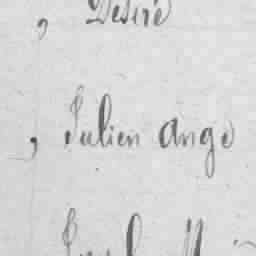 , Désiré
, Julien Ange